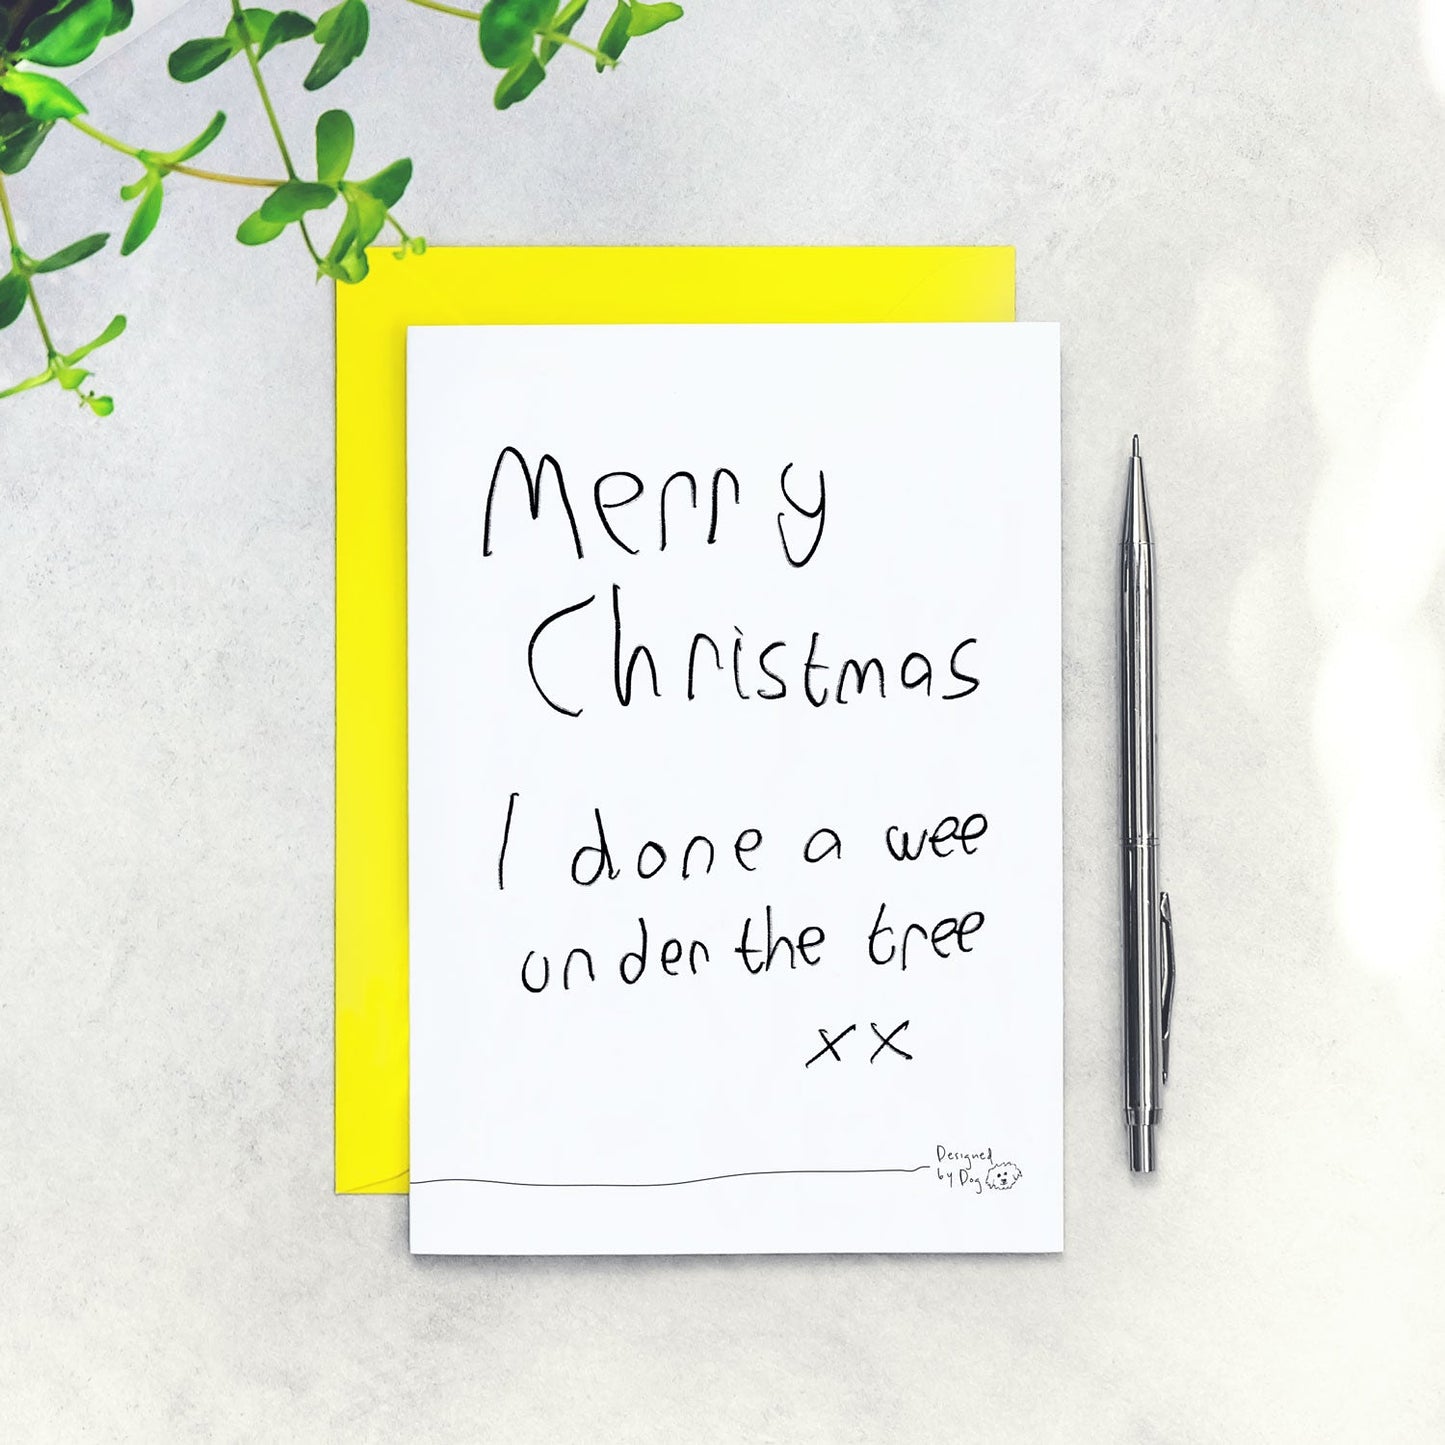 Merry
Christmas
I done a wee
under the tree
xx
Designed
by Dog